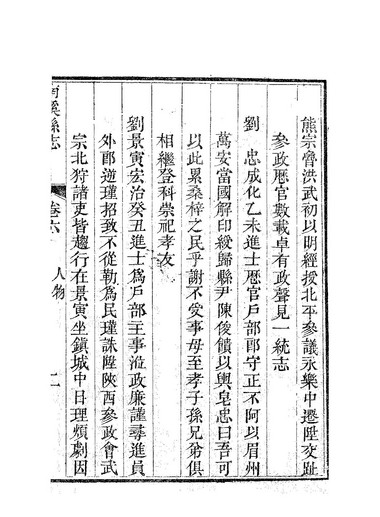 熊宗魯洪武初以明經授北平參議永樂中遷陞交趾
參政歴官數載卓有政聲見一統志
劉　忠成化乙未進士歴官戸部郎守正不阿以眉州
萬安當國解印綬歸縣尹陳俊饋以輿皂忠曰吾可
以此累桑梓之民乎謝不受事母至孝子孫兄弟俱
相繼登科崇祀孝友
劉景寅宏治癸丑進士爲戸部主事涖政廉謹尋進員
外郎逆瑾招致不從勒爲民瑾誅陞陝西參政會武
宗北狩諸吏皆趨行在景寅坐鎮城中日理煩劇因
溪縣志
卷六
人物
二